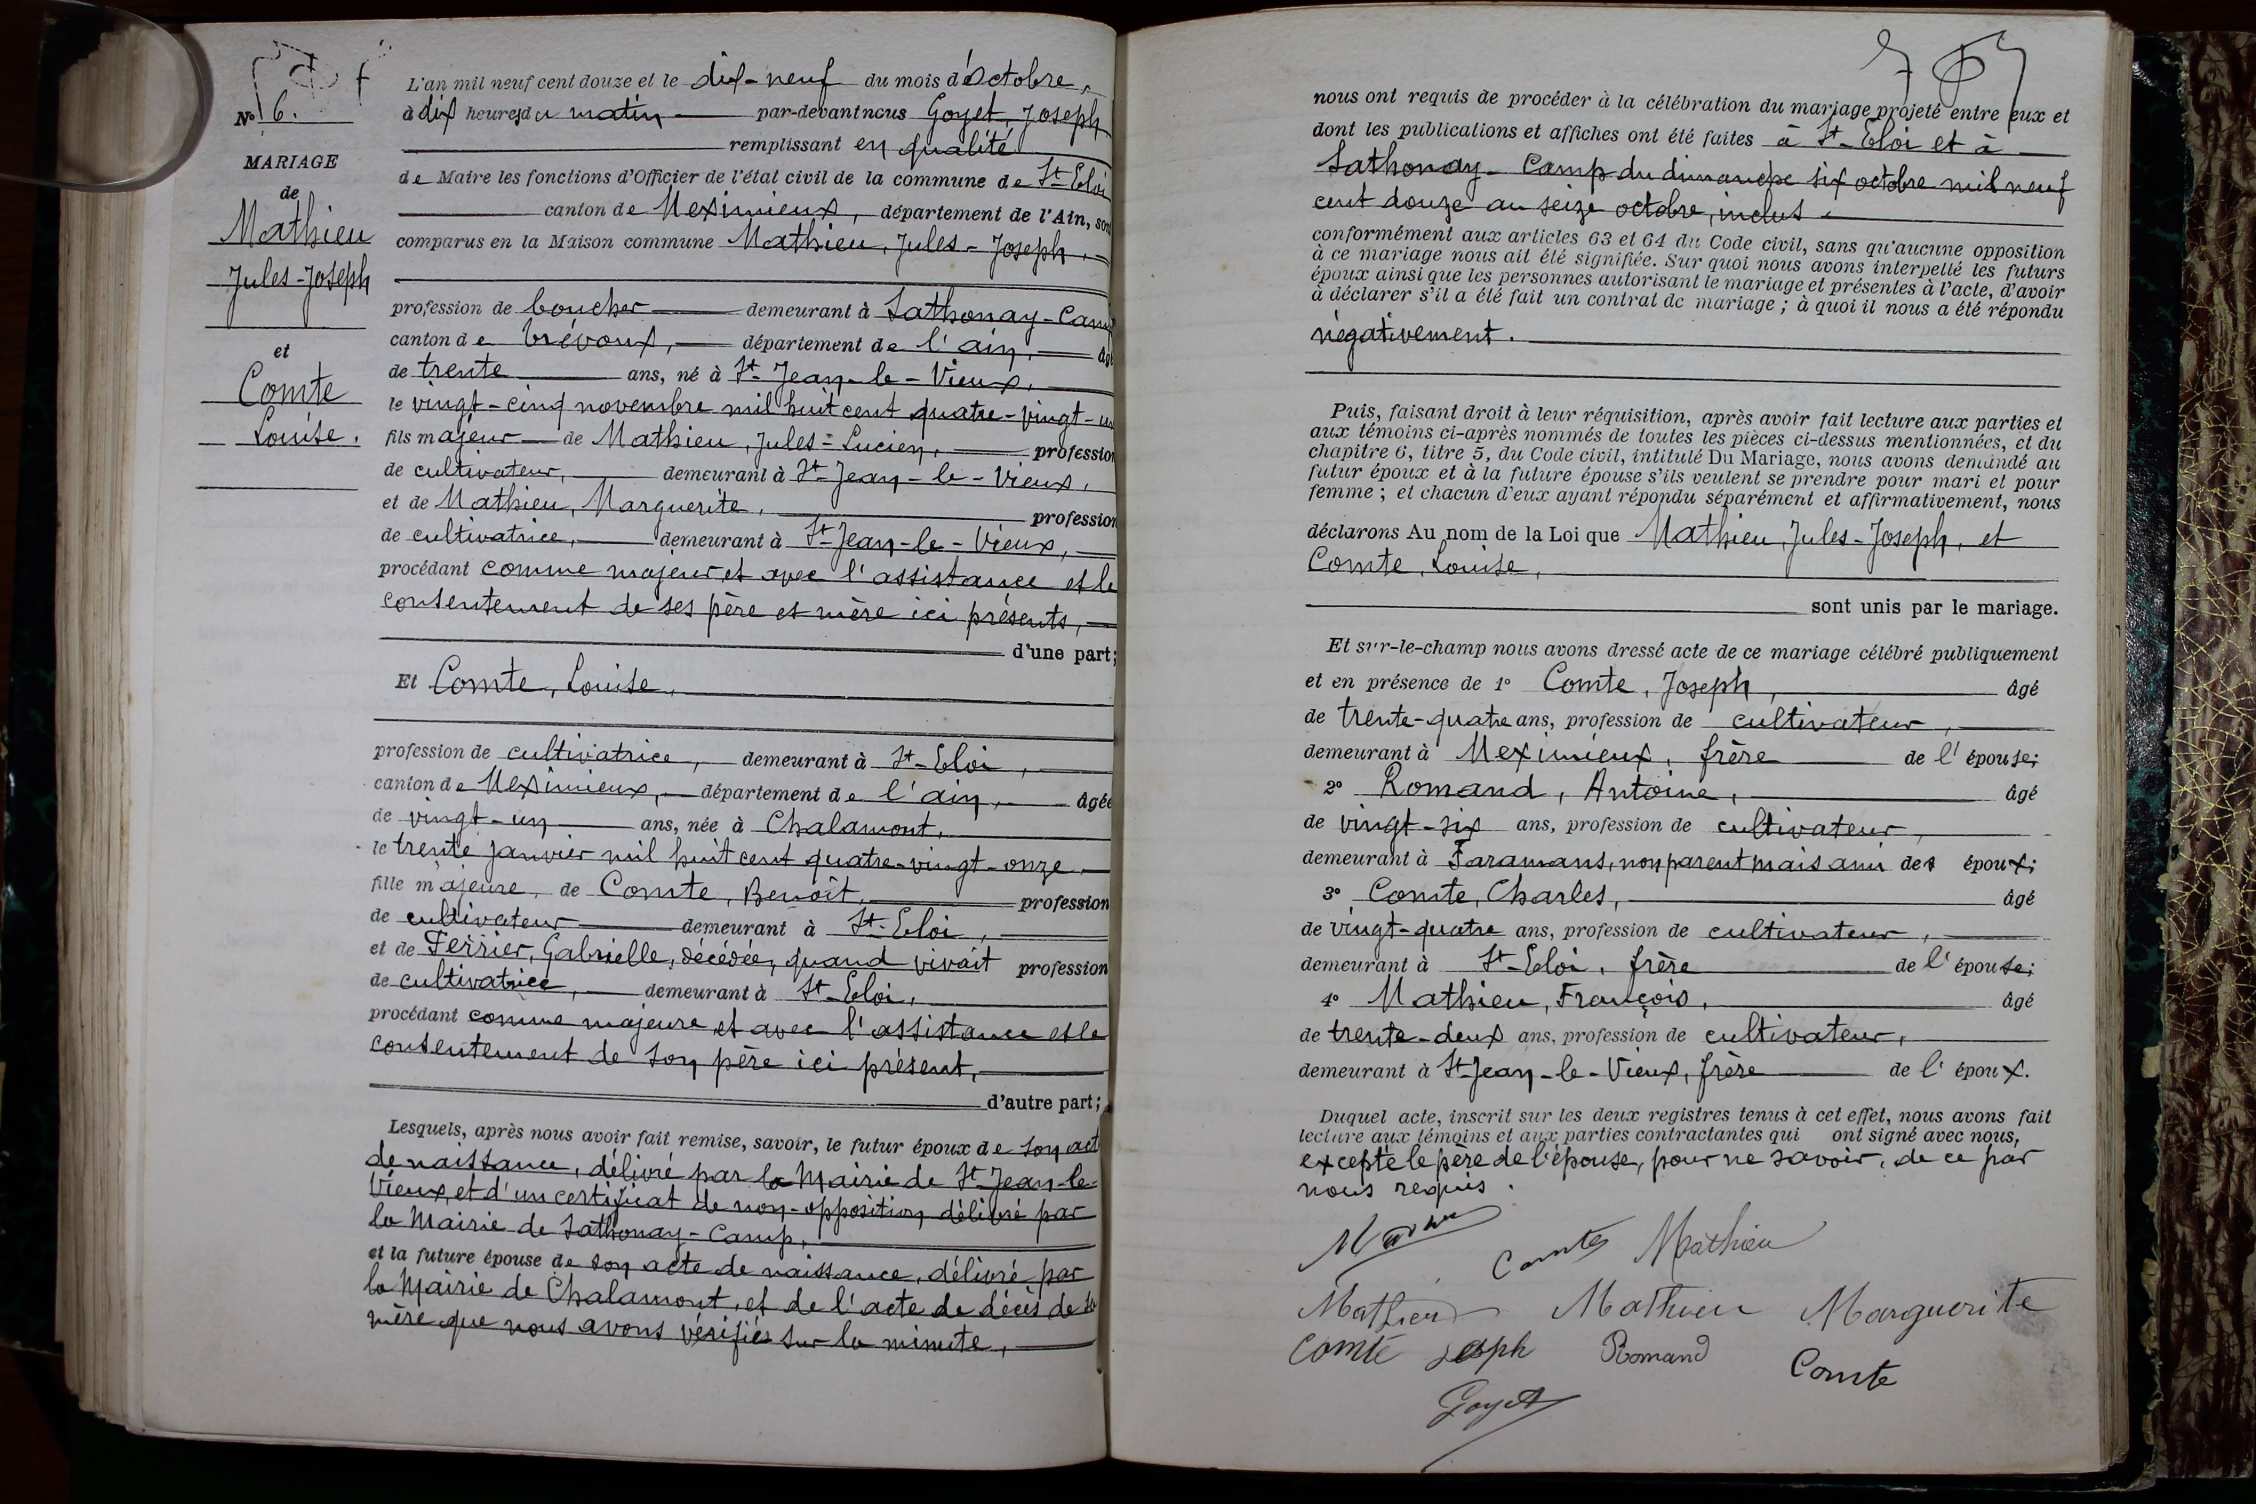 N° 6.
MARIAGE
de
Mathieu
Jules-Joseph
et
Comte
Louise.
L'an mil neuf cent douze et le dix-neuf du mois d'Octobre,
à dix heures du matin par-devant nous Goyet, Joseph
remplissant en qualité
de Maire les fonctions d'Officier de l'état civil de la commune de St-Eloi
canton de Meximieux, département de l'Ain, sont
comparus en la Maison commune Mathieu, Jules-Joseph,
profession de boucher demeurant à Sathonay-Camp
canton de Trévoux, département de l'ain, âgé
de trente ans, né à St-Jean-le-Vieux,
le vingt-cinq novembre mil huit cent quatre-vingt-un
fils majeur de Mathieu, Jules-Lucien, profession
de cultivateur, demeurant à St-Jean-le-Vieux,
et de Mathieu, Marguerite, profession
de cultivatrice, demeurant à St-Jean-le-Vieux,
procédant comme majeur et avec l'assistance et le
consentement de ses père et mère ici présents,
d'une part;
Et Comte, Louise,
profession de cultivatrice, demeurant à St-Eloi,
canton de Meximieux, département de l'ain, âgée
de vingt-un ans, née à Chalamont,
le trente janvier mil huit cent quatre-vingt-onze
fille majeure, de Comte, Benoît, profession
de cultivateur demeurant à St-Eloi,
et de Ferrier, Gabrielle, décédée, quand vivait profession
de cultivatrice, demeurant à St-Eloi,
procédant comme majeure et avec l'assistance et le
consentement de son père ici présent,
d'autre part;
Lesquels, après nous avoir fait remise, savoir, le futur époux de son act
de naissance, délivré par la Mairie de St-Jean-le-
Vieux, et d'un certificat de non-opposition délivré par
la Mairie de Sathonay-Camp,
et la future épouse de son acte de naissance, délivré par
la Mairie de Chalamont, et de l'acte de décès de sa
mère que nous avons vérifiés sur la minute,
nous ont requis de procéder à la célébration du mariage projeté entre eux et
dont les publications et affiches ont été faites à St-Eloi et à
Sathonay-Camp du dimanche six octobre mil neuf
cent douze au seize octobre, inclus,
conformément aux articles 63 et 64 du Code civil, sans qu'aucune opposition
à ce mariage nous ait été signifiée. Sur quoi nous avons interpellé les futurs
époux ainsi que les personnes autorisant le mariage et présentes à l'acte, d'avoir
à déclarer s'il a été fait un contrat de mariage ; à quoi il nous a été répondu
négativement.
Puis, faisant droit à leur réquisition, après avoir fait lecture aux parties et
aux témoins ci-après nommés de toutes les pièces ci-dessus mentionnées, et du
chapitre 6, titre 5, du Code civil, intitulé Du Mariage, nous avons demandé au
futur époux et à la future épouse s'ils veulent se prendre pour mari et pour
femme ; et chacun d'eux ayant répondu séparément et affirmativement, nous
déclarons Au nom de la Loi que Mathieu, Jules-Joseph, et
Comte, Louise,
sont unis par le mariage.
Et sur-le-champ nous avons dressé acte de ce mariage célébré publiquement
et en présence de 1° Comte, Joseph, âgé
de trente-quatre ans, profession de cultivateur,
demeurant à Meximieux, frère de l'épouse;
2° Romand, Antoine, âgé
de vingt-six ans, profession de cultivateur,
demeurant à Faramans, non parent mais ami des époux;
3° Comte, Charles, âgé
de vingt-quatre ans, profession de cultivateur,
demeurant à St-Eloi, frère de l'épouse;
4° Mathieu, François, âgé
de trente-deux ans, profession de cultivateur,
demeurant à St-Jean-le-Vieux, frère de l'époux.
Duquel acte, inscrit sur les deux registres tenus à cet effet, nous avons fait
lecture aux témoins et aux parties contractantes qui ont signé avec nous,
excepté le père de l'épouse, pour ne savoir, de ce par
nous requis.
Comte Mathieu
Mathieu Mathieu Marguerite
Comte Joseph Romand Comte
Goyet